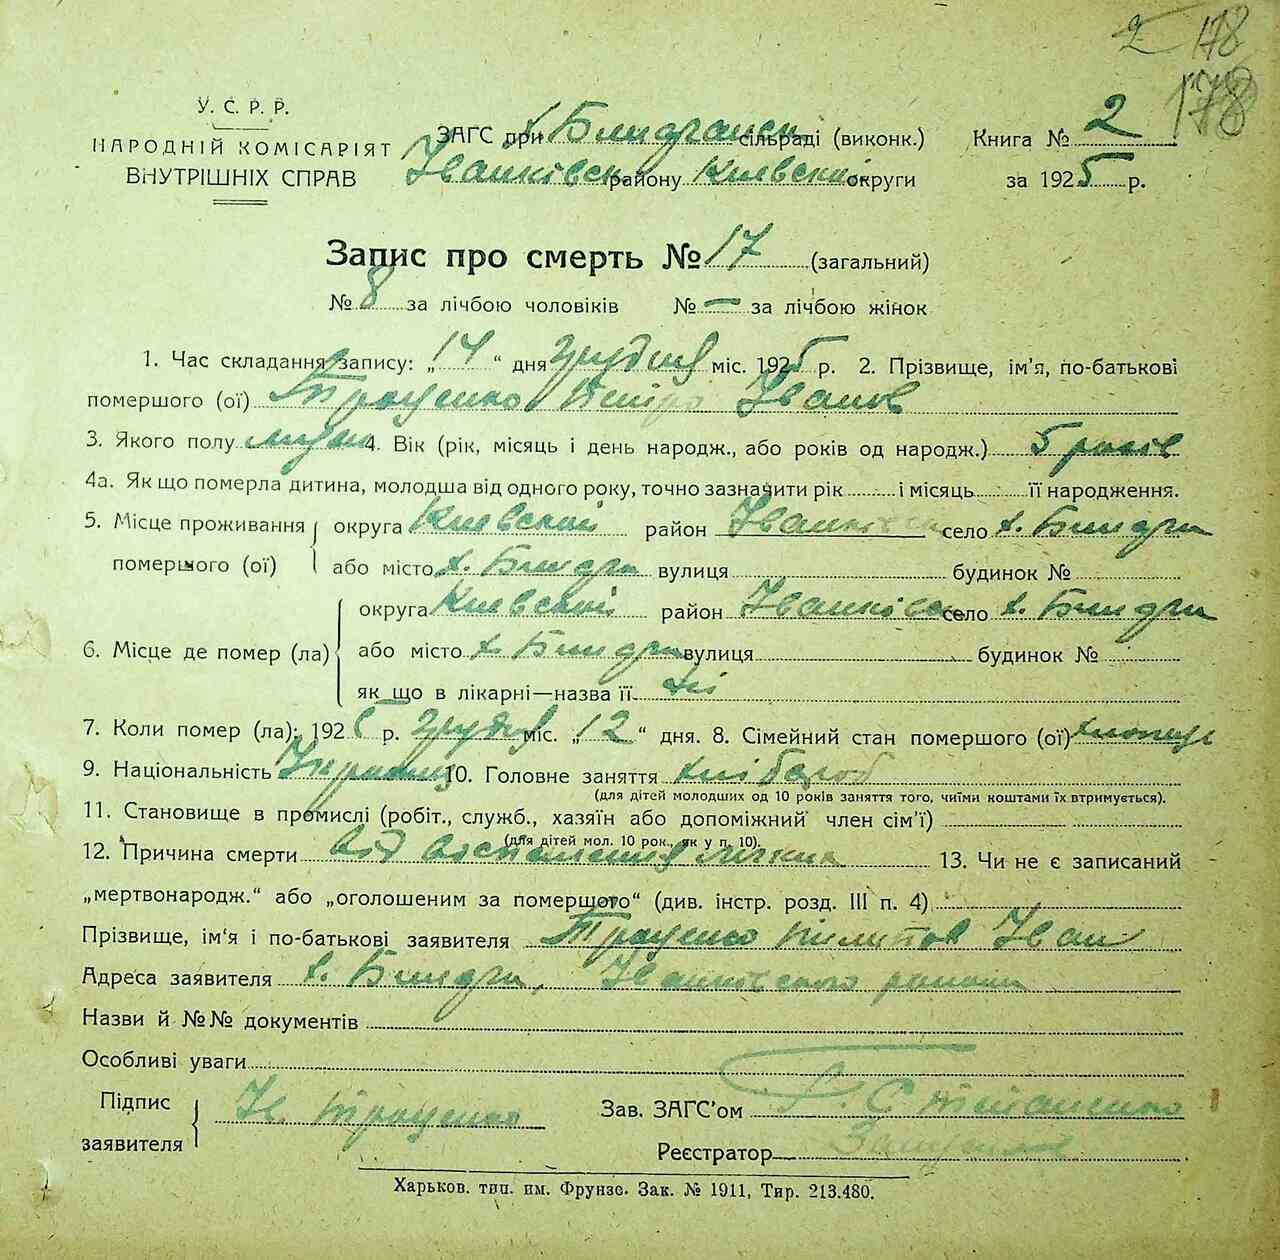 2 178
178
У. С. Р. Р.
НАРОДНІЙ КОМІСАРІЯТ
ВНУТРІШНІХ СПРАВ
ЗАГС при х. сільраді (виконк.) Книга № 2
Іванківськ району Киевской округи за 1925 р.
Запис про смерть № 17 (загальний)
№ 8 за лічбою чоловіків № — за лічбою жінок
1. Час складання запису: „14“ дня грудня міс. 1925 р. 2. Прізвище, ім'я, по-батькові
помершого (ої) Троценко Петро Іванов
3. Якого полу муж 4. Вік (рік, місяць і день народж., або років од народж.) 5 років
4а. Як що померла дитина, молодша від одного року, точно зазначити рік і місяць її народження.
5. Місце проживання округа Киевской район Іванківськ село х.
помершого (ої) або місто х. вулиця будинок №
округа Киевской район Іванківськ село х.
6. Місце де помер (ла) або місто х. вулиця будинок №
як що в лікарні—назва її ні
7. Коли помер (ла): 1925 р. грудня міс. „12“ дня. 8. Сімейний стан помершого (ої) хлопець
9. Національність Украинец 10. Головне заняття хлібороб
(для дітей молодших од 10 років заняття того, чиїми коштами їх втримується).
11. Становище в промислі (робіт., служб., хазяїн або допоміжний член сім'ї)
(для дітей мол. 10 рок., як у п. 10).
12. Причина смерти від воспаления 13. Чи не є записаний
„мертвонародж.“ або „оголошеним за померщого“ (див. інстр. розд. III п. 4)
Прізвище, ім'я і по-батькові заявителя Троценко Пилипов Іван
Адреса заявителя х. Іванківского района
Назви й №№ документів
Особливі уваги
Підпис
заявителя Ив. Троценко Зав. ЗАГС'ом Степаненко
Реєстратор
Харьков. тип. им. Фрунзе. Зак. № 1911, Тир. 213.480.